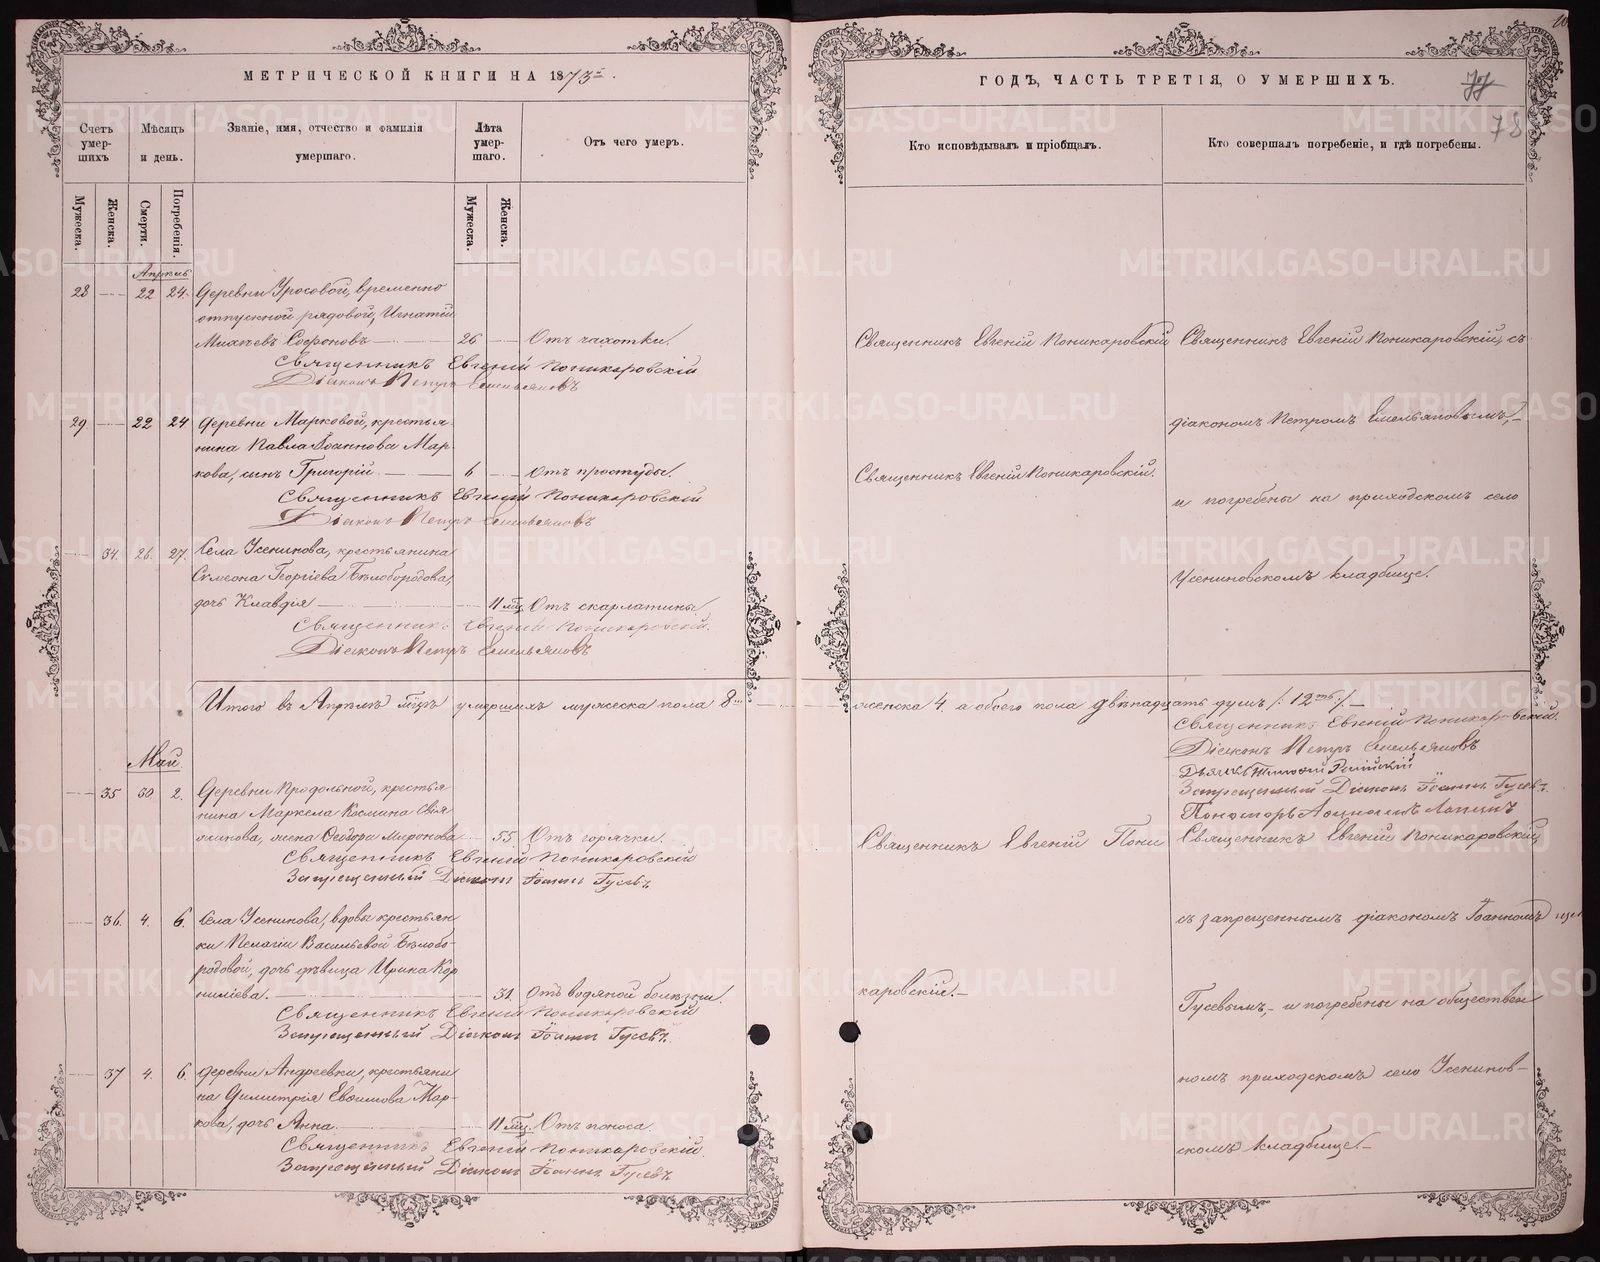 МЕТРИЧЕСКОЙ КНИГИ НА 1873й.
Счетъ умер-шихъ
Мѣсяцъ и день.
Званіе, имя, отчество и фамилія умершаго.
Лѣта умер-шаго.
Отъ чего умеръ.
Мужеска.
Женска.
Смерти.
Погребенія.
Мужеска.
Женска.
Апрѣль
28 22 24. Деревни Уросовой, временно
отпускной рядовой, Игнатій
Михеевъ Софоновъ 26 Отъ чахотки.
Священникъ Евгеній Поникаровскій
Діаконъ Петръ Емельяновъ
29 22 24 Деревни Марковой, крестья-
нина Павла Іоаннова Мар-
кова, сынъ Григорій 6 Отъ простуды.
Священникъ Евгеній Поникаровскій
Діаконъ Петръ Емельяновъ
34. 26. 27. Села Усенинова, крестьянина
Симеона Георгіева Бѣлобородова,
дочь Клавдія 11 мц. Отъ скарлатины.
Священникъ Евгеній Поникаровскій.
Діаконъ Петръ Емельяновъ
Итого въ Апрѣлѣ мцѣ умершихъ мужеска пола 8
Май
35 30 2. Деревни Продольной, крестья
нина Маркела Космина
жена Ѳеодора Миронова 55. Отъ горячки.
Священникъ Евгеній Поникаровскій
Запрещенный Діаконъ Іоаннъ Гусевъ
36. 4. 6. Села Усенинова, вдовы крестьян
ки Пелагіи Васильевой Бѣлобо-
родовой, дочь дѣвица Ирина Кор
ниліева. 31. Отъ водяной болѣзни.
Священникъ Евгеній Поникаровскій
Запрещенный Діаконъ Іоаннъ Гусевъ.
37 4. 6. Деревни Андреевки, крестьяни
на Димитрія Евѳимова Мар-
кова, дочь Анна 11 мц. Отъ поноса.
Священникъ Евгеній Поникаровскій.
Запрещенный Діаконъ Іоаннъ Гусевъ.
ГОДЪ, ЧАСТЬ ТРЕТІЯ, О УМЕРШИХЪ.
77
78
Кто исповѣдывалъ и пріобщалъ.
Кто совершалъ погребеніе, и гдѣ погребены.
Священникъ Евгеній Поникаровскій
Священникъ Евгеній Поникаровскій, съ
діакономъ Петромъ Емельяновымъ,
Священникъ Евгеній Поникаровскій.
и погребены на приходскомъ село
Усениновскомъ кладбище.
женска 4. а обоего пола двѣнадцать душъ /: 12ть :/.
Священникъ Евгеній Поникаровскій.
Діаконъ Петръ Емельяновъ
Запрещенный Діаконъ Іоаннъ Гусевъ.
Священникъ Евгеній Пони
Священникъ Евгеній Поникаровскій,
съ запрещеннымъ діакономъ Іоанномъ
каровскій.
Гусевымъ, и погребены на обществен
номъ приходскомъ село Усенинов-
скомъ кладбище.
METRIKI.GASO-URAL.RU